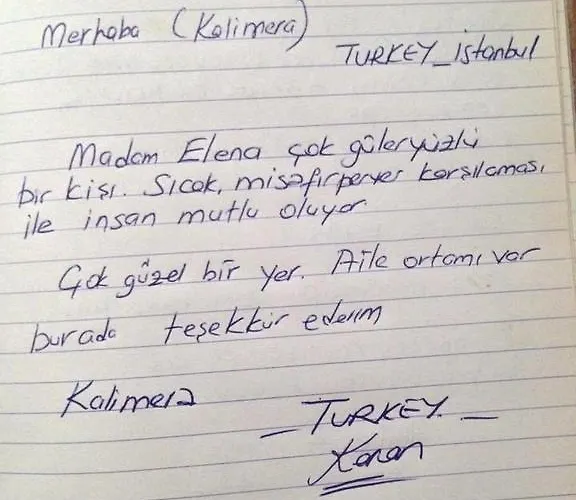 Merhaba (Kalimera)
TURKEY_istanbul
Madam Elena çok güleryüzlü
bir kişi. Sıcak, misafirperver karşılaması
ile insan mutlu oluyor
Çok güzel bir yer. Aile ortamı var
burada teşekkür ederim
Kalimera
_ TURKEY. _
Kenan